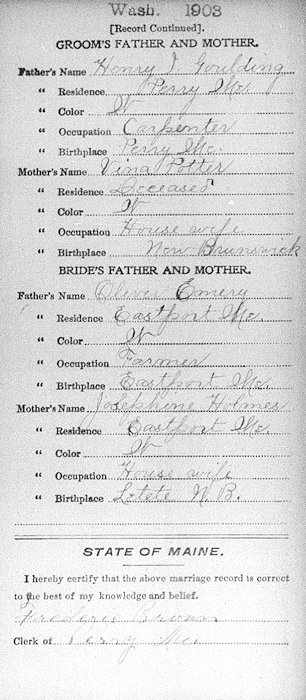 Wash. 1903
[Record Continued].
GROOM'S FATHER AND MOTHER.
Father's Name Henry J Goulding
" Residence Perry Me.
" Color W
" Occupation Carpenter
" Birthplace Perry Me.
Mother's Name Vina Potter
" Residence Deceased
" Color W
" Occupation House wife
" Birthplace New Brunswick
BRIDE'S FATHER AND MOTHER.
Father's Name Oliver Emery
" Residence Eastport Me.
" Color W
" Occupation Farmer
" Birthplace Eastport Me.
Mother's Name Josephine Holmes
" Residence Eastport Me.
" Color W
" Occupation House wife
" Birthplace Letete N.B.
STATE OF MAINE.
I hereby certify that the above marriage record is correct
to the best of my knowledge and belief.
Brown
Clerk of Perry Me